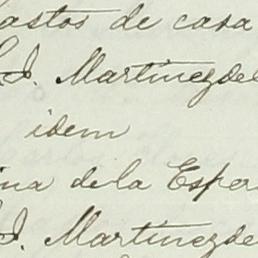 astos de casa
J. Martinezdel
idem
ina dela Esper
J. Martinezde